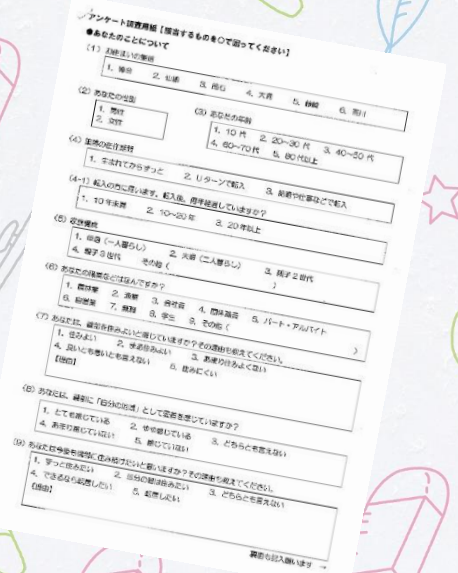 アンケート調査用紙【該当するものを○で囲ってください】
●あなたのことについて
(1) お住まいの
1. 2. 3. 4. 大 5. 6.
(2) あなたの性別
1. 男性
2. 女性
(3) あなたの年齢
1. 10代 2. 20～30代 3. 40～50代
4. 60～70代 5. 80代以上
(4)
1. 生まれてからずっと 2. Uターンで転入 3. 結婚や仕事などで転入
(4-1) 転入の方に伺います。転入後、何年経過していますか？
1. 10年未満 2. 10～20年 3. 20年以上
(5) 家族構成
1. 単身（一人暮らし） 2. 夫婦（二人暮らし） 3. 親子2世代
4. 親子3世代 その他（ ）
(6) あなたの職業などはなんですか？
1. 農林業 2. 漁業 3. 会社員 4. 団体職員 5. パート・アルバイト
6. 自営業 7. 無職 8. 学生 9. その他（ ）
(7) あなたは、 を住みよいと感じていますか？その理由も教えてください。
1. 住みよい 2. まあ住みよい 3. あまり住みよくない
4. 良いとも悪いとも言えない 5. 住みにくい
【理由】
(8) あなたは、 に「自分の地域」として愛着を感じていますか？
1. とても感じている 2. やや感じている 3. どちらとも言えない
4. あまり感じていない 5. 感じていない
(9) あなたは今後も に住み続けたいと思いますか？その理由も教えてください。
1. ずっと住みたい 2. 当分の間は住みたい 3. どちらとも言えない
4. できるなら転居したい 5. 転居したい
【理由】
裏面も記入願います →